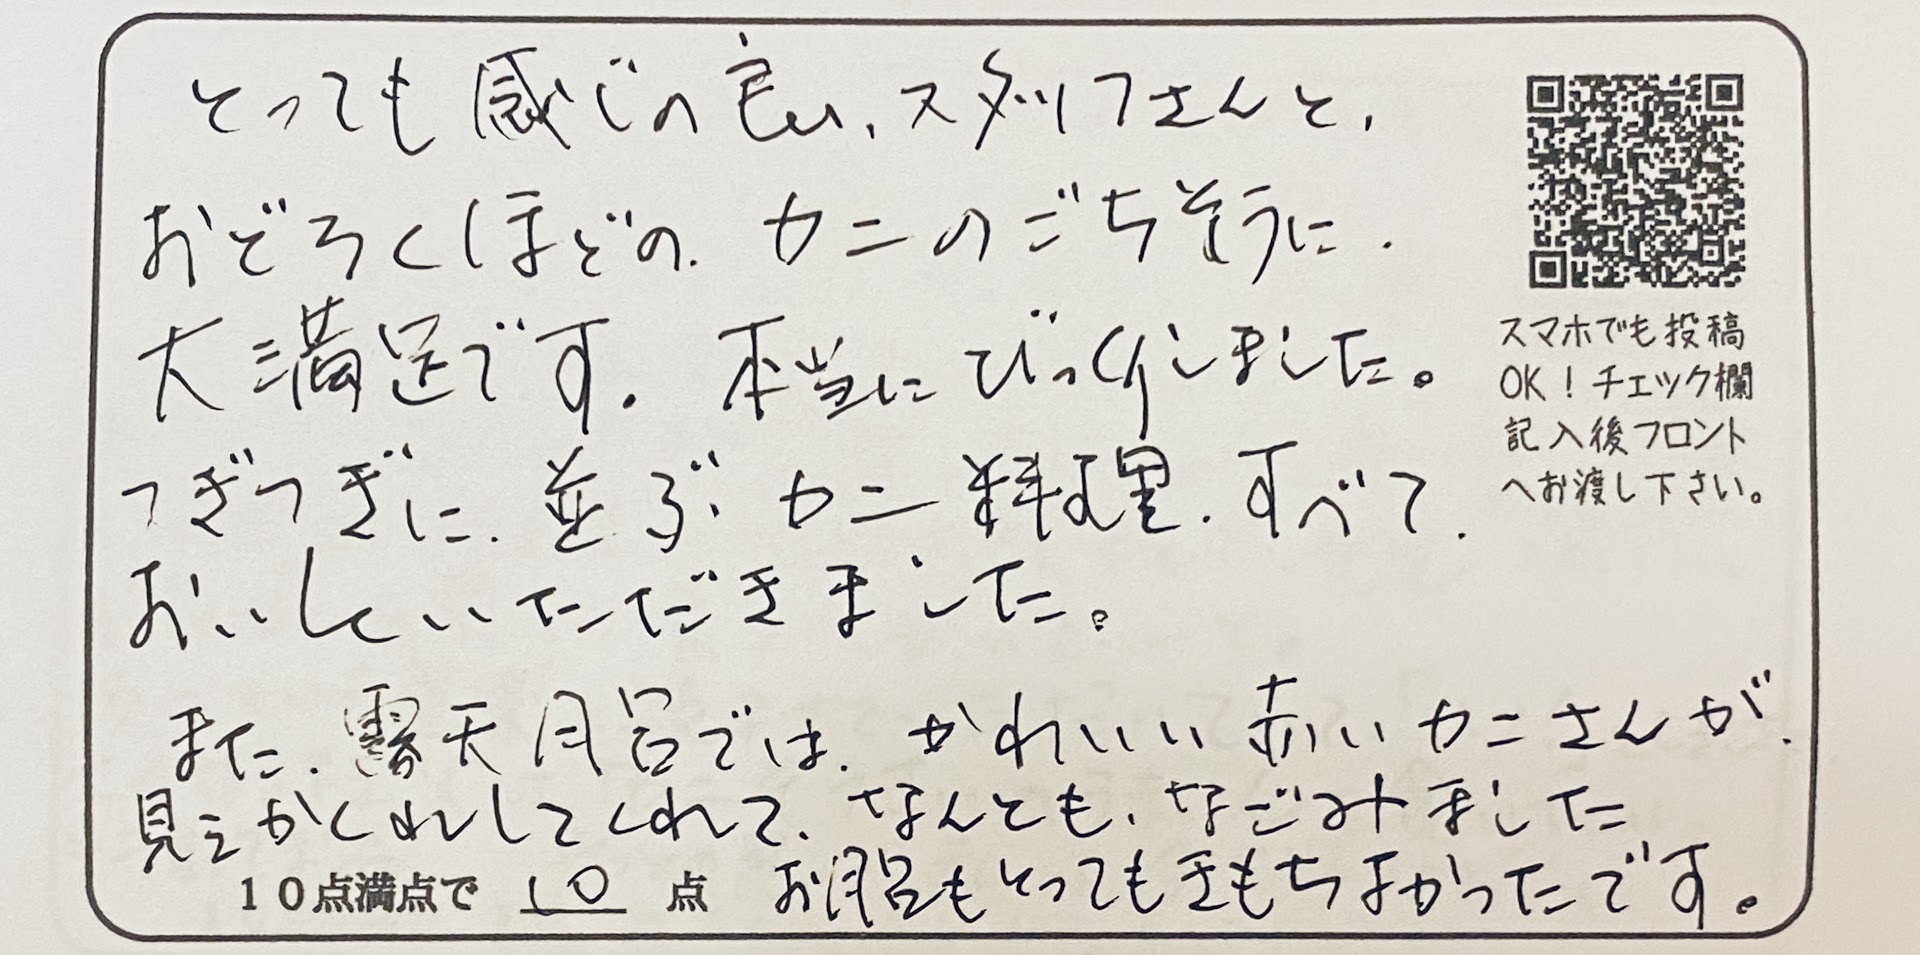 とっても感じの良い、スタッフさんと、
おどろくほどの、カニのごちそうに、
大満足です。本当にびっくりしました。
つぎつぎに、並ぶ、カニ料理、すべて、
おいしくいただきました。
また、露天風呂では、かわいいい赤いカニさんが、
見えかくれしてくれて、なんとも、なごみました
お風呂もとってもきもちよかったです。
10点満点で 10 点
スマホでも投稿
OK！チェック欄
記入後フロント
へお渡し下さい。